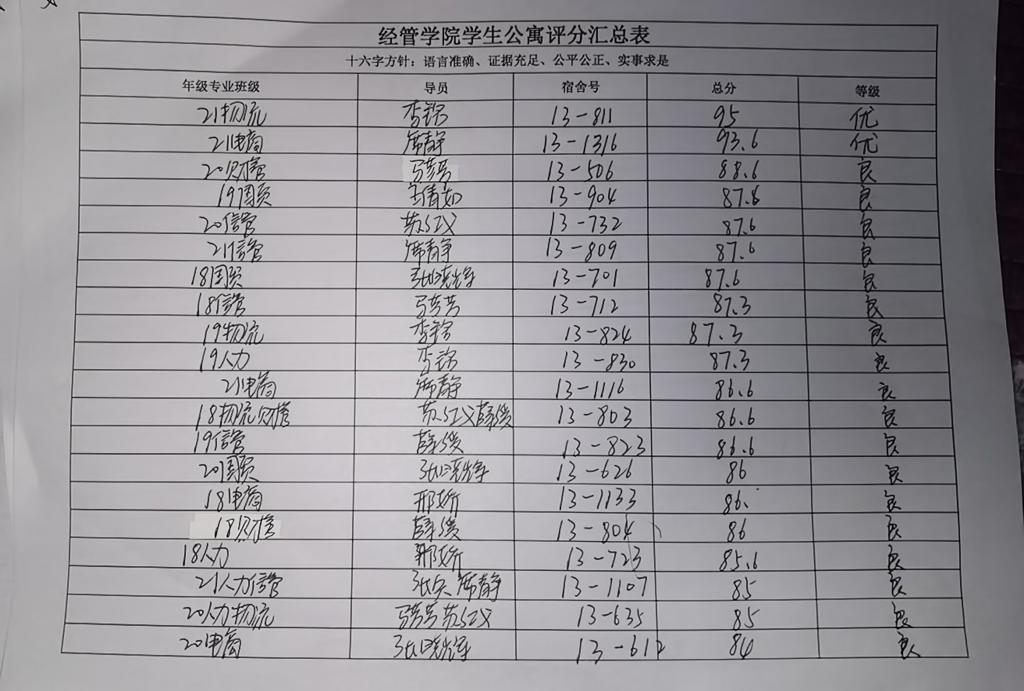 经管学院学生公寓评分汇总表
十六字方针：语言准确、证据充足、公平公正、实事求是
年级专业班级 导员 宿舍号 总分 等级
21物流 13-811 95 优
21电商 席静 13-1316 93.6 优
20财管 13-506 88.6 良
19国贸 王倩如 13-904 87.6 良
20信管 苏红义 13-732 87.6 良
21信管 席静 13-809 87.6 良
18国贸 13-701 87.6 良
18信管 13-712 87.3 良
19物流 13-824 87.3 良
19人力 13-830 87.3 良
21电商 席静 13-1116 86.6 良
18物流财管 苏红义薛媛 13-803 86.6 良
19信管 薛媛 13-823 86.6 良
20国贸 13-626 86 良
18电商 邢娇 13-1133 86. 良
18财管 薛媛 13-804 86 良
18人力 邢娇 13-723 85.6 良
21人力信管 席静 13-1107 85 良
20人力物流 苏红义 13-635 85 良
20电商 13-612 84 良